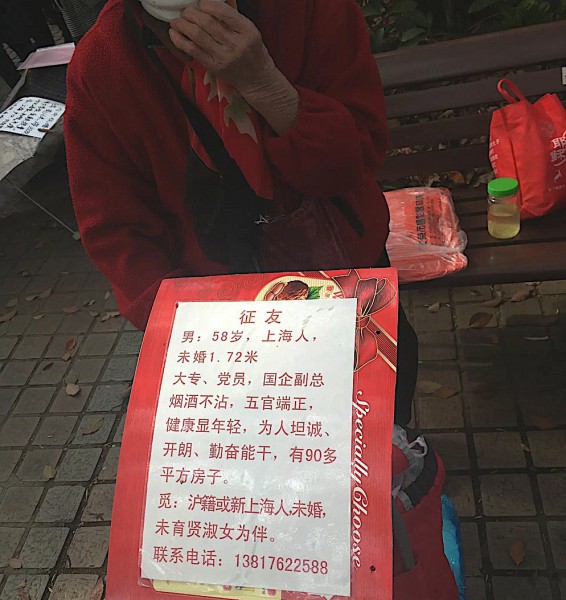 征友
男：58岁，上海人，
未婚1.72米
大专、党员，国企副总
烟酒不沾，五官端正，
健康显年轻，为人坦诚、
开朗、勤奋能干，有90多
平方房子。
觅：沪籍或新上海人，未婚，
未育贤淑女为伴。
联系电话：13817622588
Specially Choose